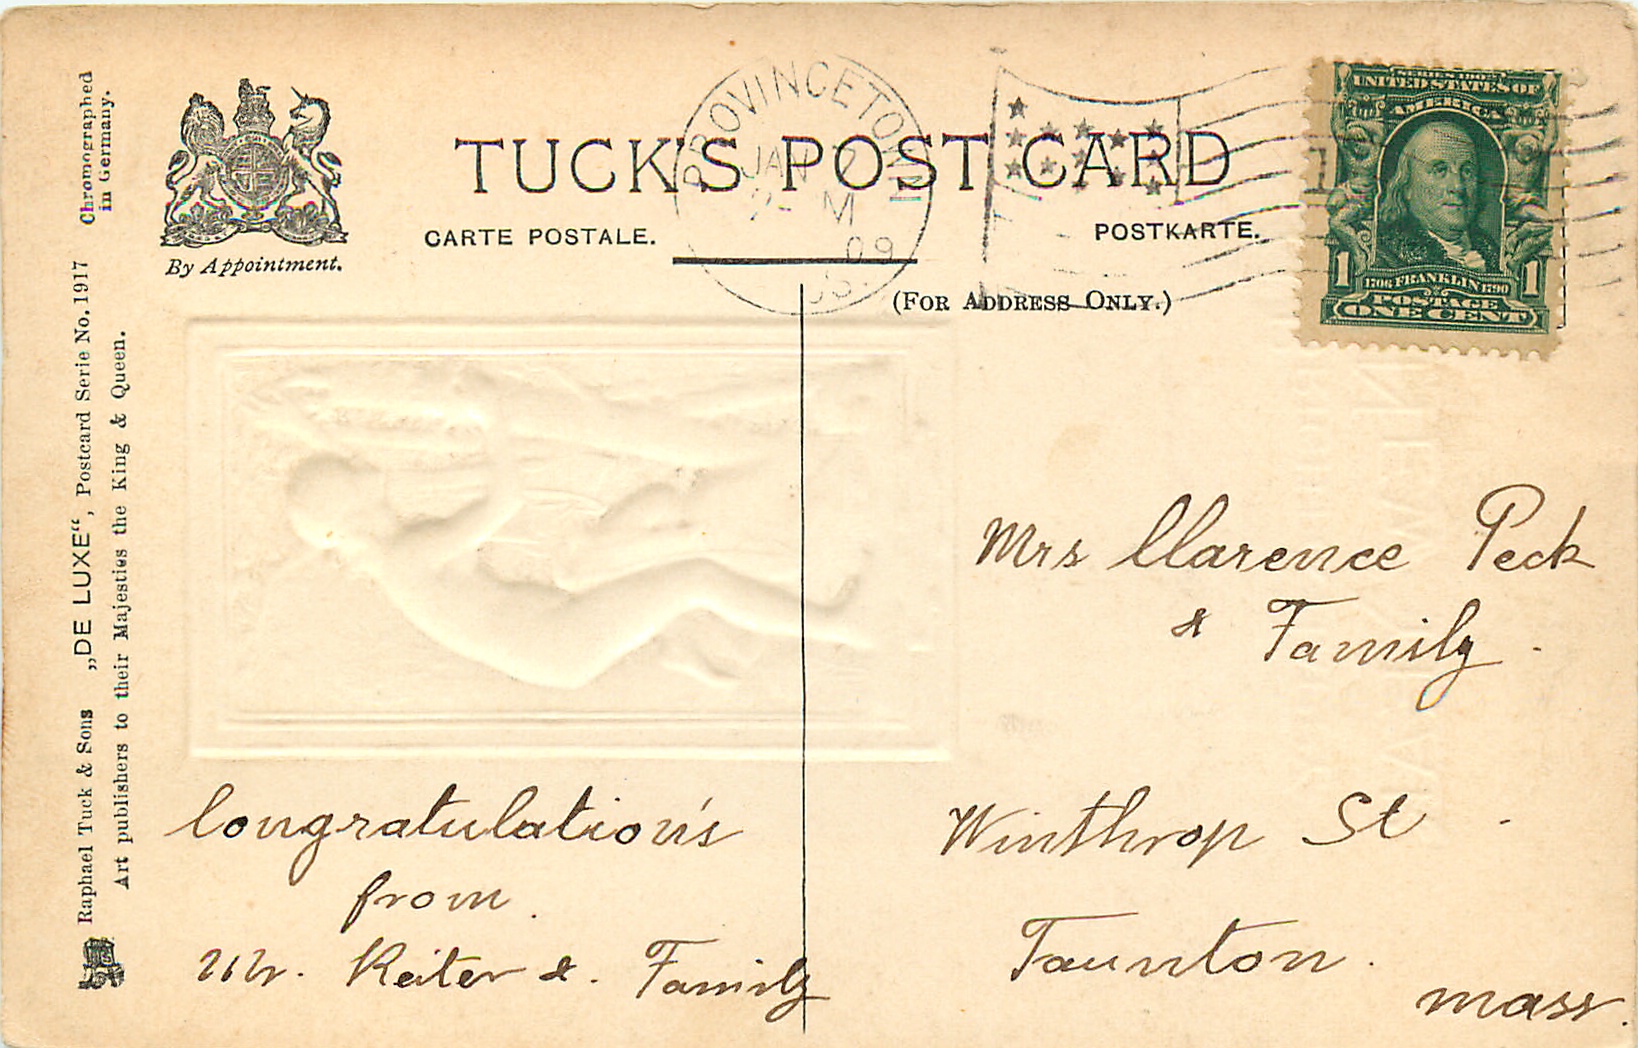 TUCK'S POST CARD
CARTE POSTALE.
POSTKARTE.
By Appointment.
(FOR ADDRESS ONLY.)
PROVINCETOWN
JAN 7
M
09
UNITED STATES OF
AMERICA
1 1706 FRANKLIN 1790 1
POSTAGE
ONE CENT
Raphael Tuck & Sons „DE LUXE“, Postcard Serie No. 1917 Chromographed
in Germany.
Art publishers to their Majesties the King & Queen.
Congratulations
from
Mr. Reiter & Family
Mrs Clarence Peck
& Family
Winthrop St
Taunton.
Mass.